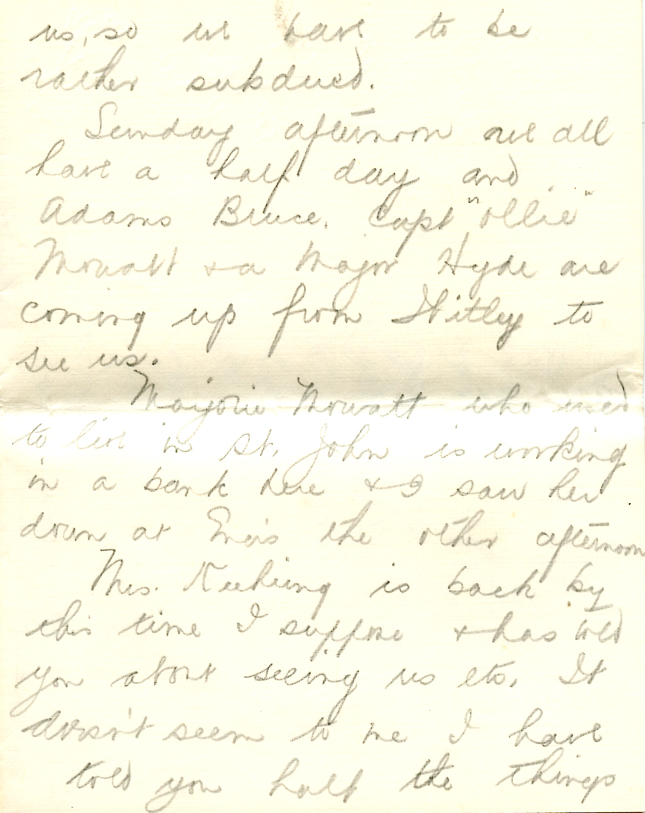 us, so we have to be
rather subdued.
Sunday afternoon we all
have a half day and
Adams Bruce, Capt "Ollie"
Mowatt & a Major Hyde are
coming up from Witley to
see us.
Marjorie Mowatt who used
to live in St. John is working
in a bank here & I saw her
down at the other afternoon
Mrs. is back by
this time I suppose & has told
you about seeing us etc. It
doesn't seem to me I have
told you half the things